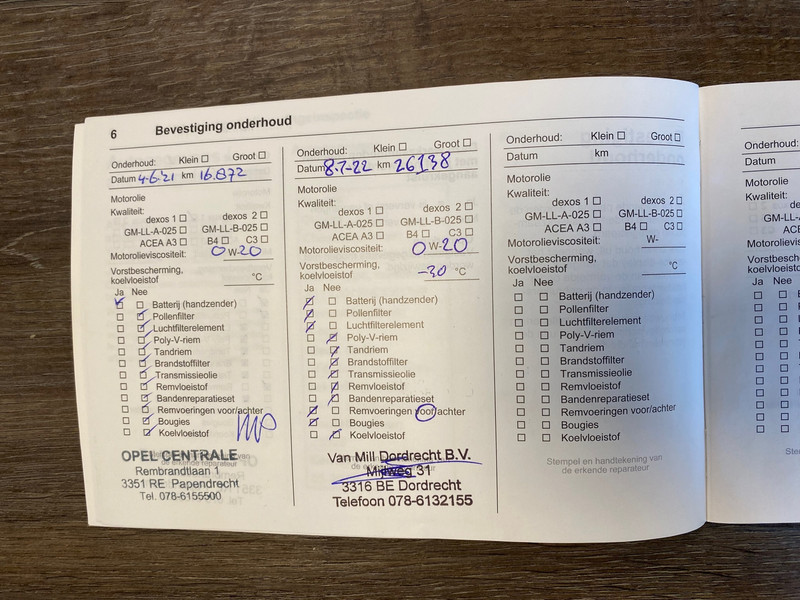 6 Bevestiging onderhoud
Onderhoud: Klein ☐ Groot ☐
Datum 4-6-'21 km 16.872
Motorolie
Kwaliteit:
dexos 1 ☐ dexos 2 ☐
GM-LL-A-025 ☐ GM-LL-B-025 ☐
ACEA A3 ☐ B4 ☐ C3 ☐
Motorolieviscositeit: 0 W-20
Vorstbescherming,
koelvloeistof °C
Ja Nee
Batterij (handzender)
Pollenfilter
Luchtfilterelement
Poly-V-riem
Tandriem
Brandstoffilter
Transmissieolie
Remvloeistof
Bandenreparatieset
Remvoeringen voor/achter
Bougies
Koelvloeistof
OPEL CENTRALE
Rembrandtlaan 1
de erkende reparateur
3351 RE Papendrecht
Tel. 078-6155500
Onderhoud: Klein ☐ Groot ☐
Datum 8-7-22 km 26138
Motorolie
Kwaliteit:
dexos 1 ☐ dexos 2 ☐
GM-LL-A-025 ☐ GM-LL-B-025 ☐
ACEA A3 ☐ B4 ☐ C3 ☐
Motorolieviscositeit: 0 W-20
Vorstbescherming,
koelvloeistof -30 °C
Ja Nee
Batterij (handzender)
Pollenfilter
Luchtfilterelement
Poly-V-riem
Tandriem
Brandstoffilter
Transmissieolie
Remvloeistof
Bandenreparatieset
Remvoeringen voor/achter
Bougies
Koelvloeistof
Van Mill Dordrecht B.V.
31
3316 BE Dordrecht
Telefoon 078-6132155
Onderhoud: Klein ☐ Groot ☐
Datum km
Motorolie
Kwaliteit:
dexos 1 ☐ dexos 2 ☐
GM-LL-A-025 ☐ GM-LL-B-025 ☐
ACEA A3 ☐ B4 ☐ C3 ☐
Motorolieviscositeit: W-
Vorstbescherming,
koelvloeistof °C
Ja Nee
Batterij (handzender)
Pollenfilter
Luchtfilterelement
Poly-V-riem
Tandriem
Brandstoffilter
Transmissieolie
Remvloeistof
Bandenreparatieset
Remvoeringen voor/achter
Bougies
Koelvloeistof
Stempel en handtekening van
de erkende reparateur
Onderhoud:
Datum
Motorolie
Kwaliteit:
Ja Nee